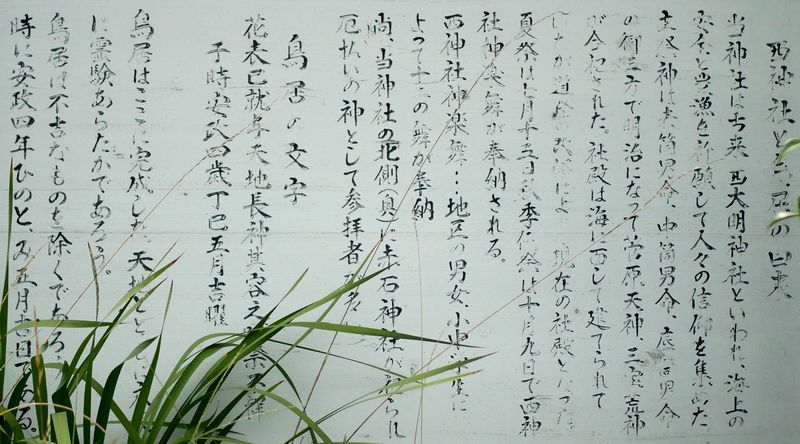 西神社と鳥居の由来
当神社は古来西大明神社といわれ、海上の
安全と豊漁を祈願して人々の信仰を集めた
神は 筒男命、中筒男命、底筒男命
の御三方で明治になって菅原天神、三宝荒神
が合祀された。社殿は海に面して建てられて
いたが道 により現在の社殿となった。
夏祭は七月十五日秋季 祭は十月九日で西神
社神楽舞が奉納される。
西神社神楽舞…地区の男女、小中学生に
よって十二の舞が奉納
尚、当神社の北側(奥)に赤石神社が られ
厄払いの神として参拝者が多い
鳥居の文字
花表已就 天地長神其容之 不
于時安政四歳丁巳五月吉曜
鳥居はここに完成した、天地とともに
に霊験あらたかであろう。
鳥居は不吉なものを除くであろう
時に安政四年ひのと、み五月吉日である。